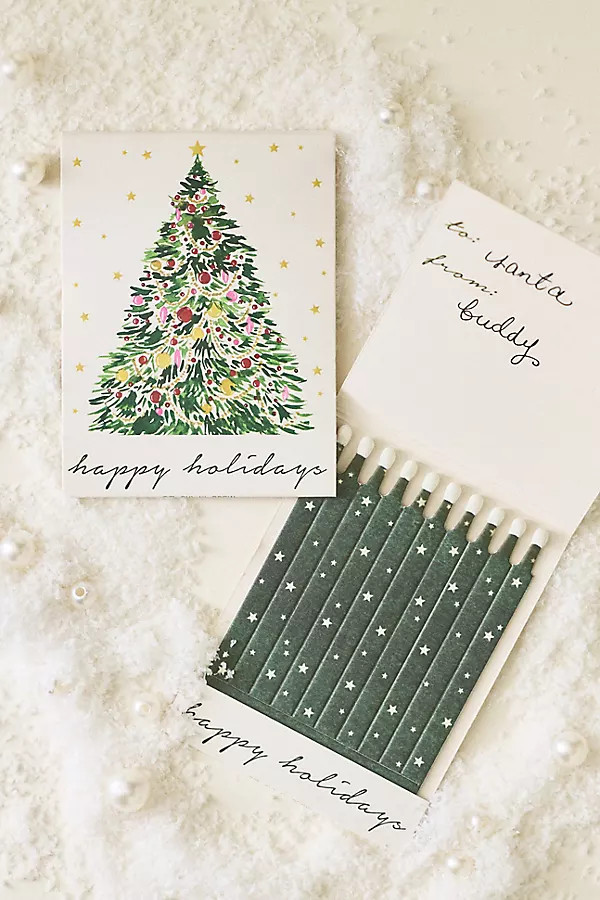 happy holidays
to: Santa
from:
buddy
happy holidays